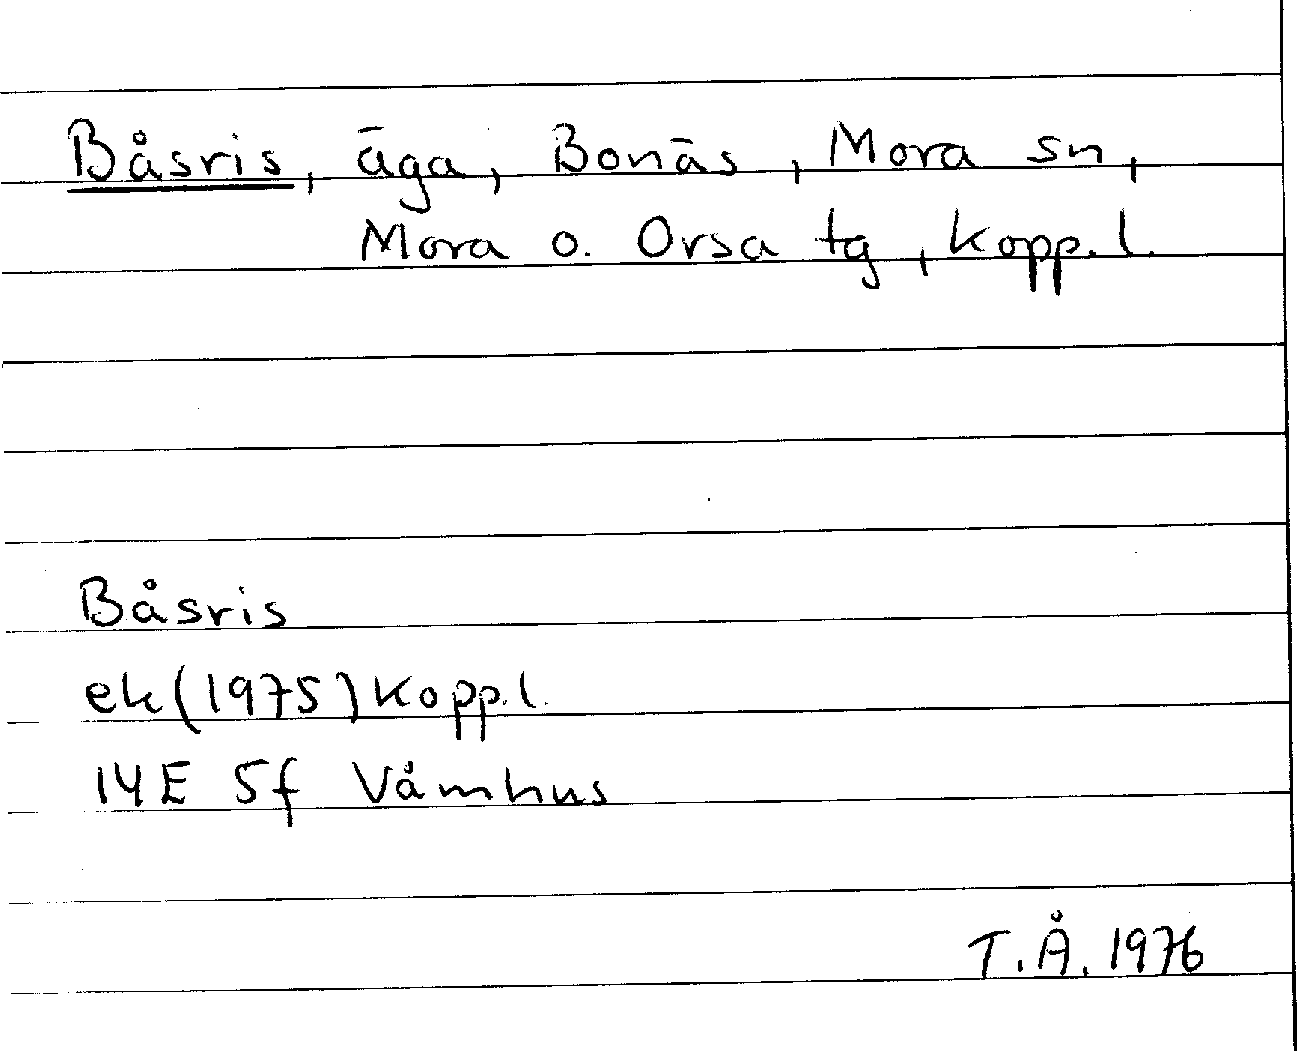 Båsris, äga, Bonäs, Mora sn,
Mora o. Orsa tg, Kopp. l.
Båsris
ek (1975) Kopp. l.
14E 5f Våmhus
T.Å. 1976